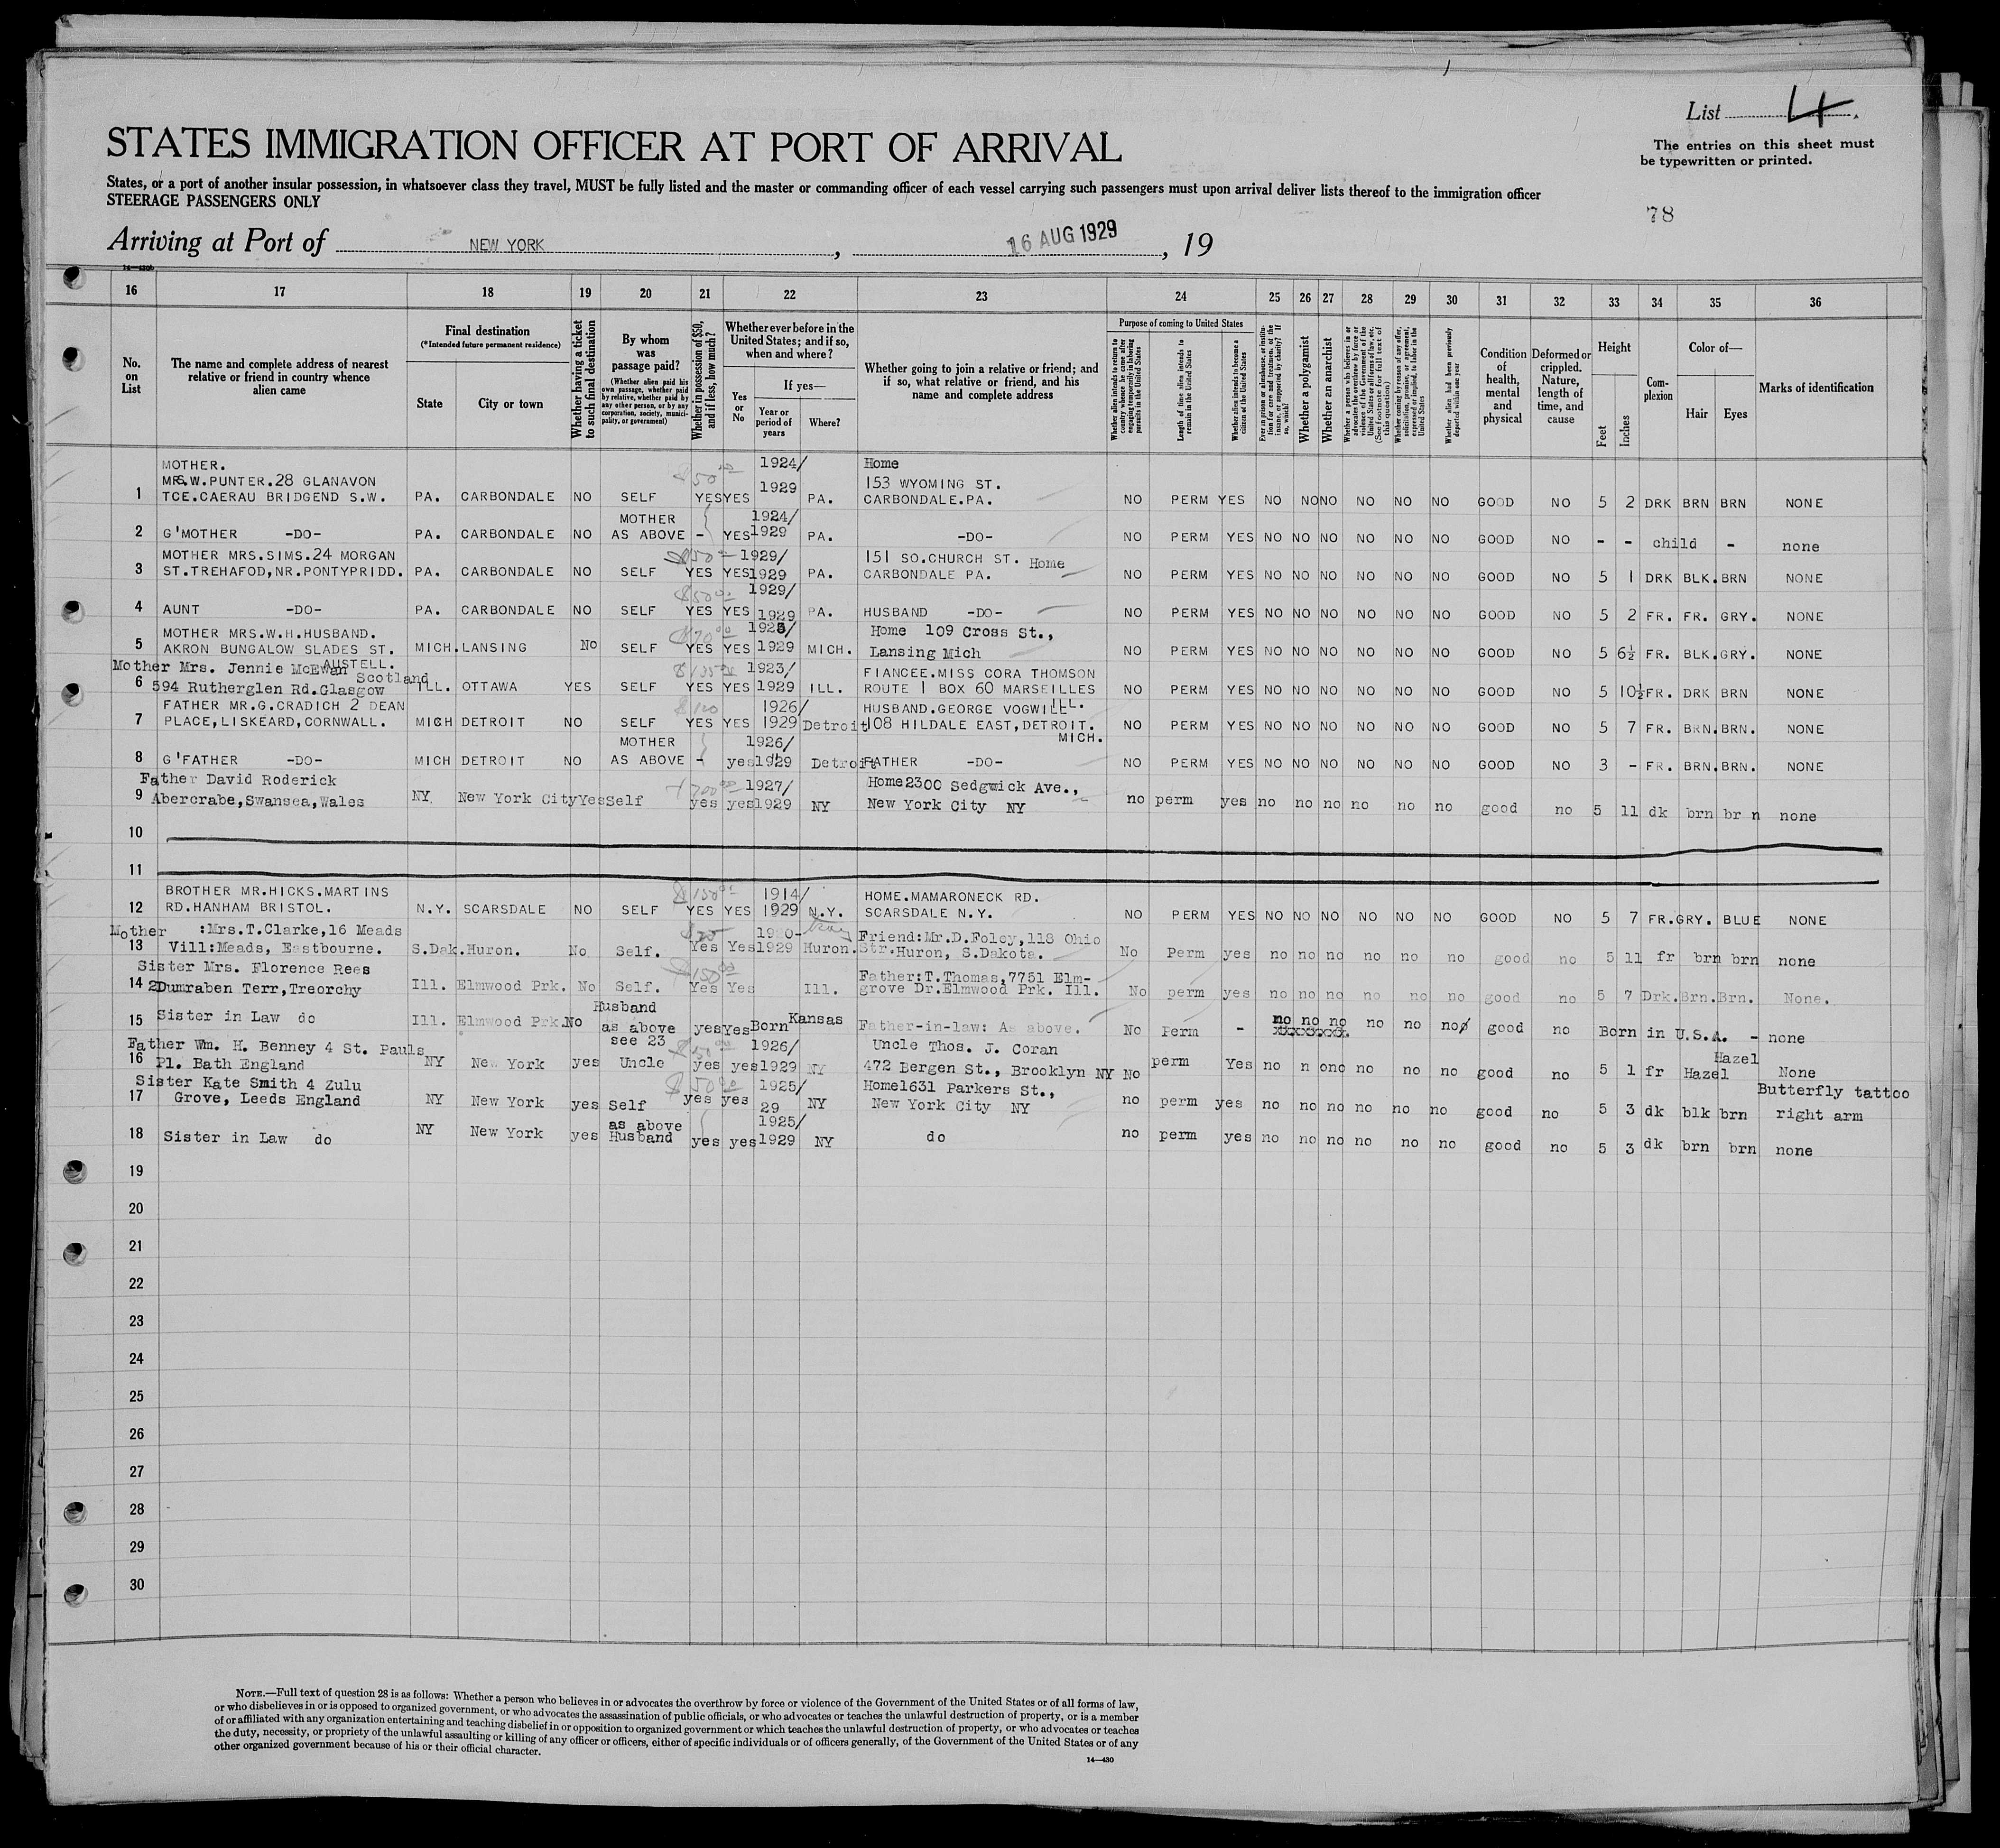 List 4.
The entries on this sheet must
be typewritten or printed.
STATES IMMIGRATION OFFICER AT PORT OF ARRIVAL
States, or a port of another insular possession, in whatsoever class they travel, MUST be fully listed and the master or commanding officer of each vessel carrying such passengers must upon arrival deliver lists thereof to the immigration officer
STEERAGE PASSENGERS ONLY
78
Arriving at Port of NEW YORK, 16 AUG 1929, 19
14—430b
16 17 18 19 20 21 22 23 24 25 26 27 28 29 30 31 32 33 34 35 36
No. on List
The name and complete address of nearest relative or friend in country whence alien came
Final destination
(*Intended future permanent residence)
State
City or town
Whether having a ticket to such final destination
By whom was passage paid?
(Whether alien paid his own passage, whether paid by relative, whether paid by any other person, or by any corporation, society, municipality, or government)
Whether in possession of $50, and if less, how much?
Whether ever before in the United States; and if so, when and where?
Yes or No
If yes—
Year or period of years
Where?
Whether going to join a relative or friend; and if so, what relative or friend, and his name and complete address
Purpose of coming to United States
Whether alien intends to return to country whence he came after engaging temporarily in laboring pursuits in the United States
Length of time alien intends to remain in the United States
Whether alien intends to become a citizen of the United States
Ever in prison or almshouse, or institution for care and treatment of the insane, or supported by charity? If so, which?
Whether a polygamist
Whether an anarchist
Whether a person who believes in or advocates the overthrow by force or violence of the Government of the United States or all forms of law, etc. (See footnote for full text of this question)
Whether coming by reason of any offer, solicitation, promise, or agreement, expressed or implied, to labor in the United States
Whether alien had been previously deported within one year
Condition of health, mental and physical
Deformed or crippled. Nature, length of time, and cause
Height
Feet
Inches
Complexion
Color of—
Hair
Eyes
Marks of identification
MOTHER. 1924/ Home
MRS.W.PUNTER.28 GLANAVON $50 1929 153 WYOMING ST.
1 TCE.CAERAU BRIDGEND S.W. PA. CARBONDALE NO SELF YES YES PA. CARBONDALE.PA. NO PERM YES NO NO NO NO NO NO GOOD NO 5 2 DRK BRN BRN NONE
MOTHER 1924/
2 G'MOTHER -DO- PA. CARBONDALE NO AS ABOVE - YES 1929 PA. -DO- NO PERM YES NO NO NO NO NO NO GOOD NO - - child - none
MOTHER MRS.SIMS.24 MORGAN $50 1929/ 151 SO.CHURCH ST. Home
3 ST.TREHAFOD,NR.PONTYPRIDD. PA. CARBONDALE NO SELF YES YES 1929 PA. CARBONDALE PA. NO PERM YES NO NO NO NO NO NO GOOD NO 5 1 DRK BLK. BRN NONE
$50 1929/
4 AUNT -DO- PA. CARBONDALE NO SELF YES YES 1929 PA. HUSBAND -DO- NO PERM YES NO NO NO NO NO NO GOOD NO 5 2 FR. FR. GRY. NONE
MOTHER MRS.W.H.HUSBAND. $70 1925/ Home 109 Cross St.,
5 AKRON BUNGALOW SLADES ST. MICH. LANSING No SELF YES YES 1929 MICH. Lansing Mich NO PERM YES NO NO NO NO NO NO GOOD NO 5 6½ FR. BLK. GRY. NONE
AUSTELL.
Mother Mrs. Jennie McEwan Scotland $135 1923/ FIANCEE.MISS CORA THOMSON
6 594 Rutherglen Rd.Glasgow ILL. OTTAWA YES SELF YES YES 1929 ILL. ROUTE 1 BOX 60 MARSEILLES ILL. NO PERM YES NO NO NO NO NO NO GOOD NO 5 10½ FR. DRK BRN NONE
FATHER MR.G.CRADICH 2 DEAN $100 1926/ HUSBAND.GEORGE VOGWILL
7 PLACE,LISKEARD,CORNWALL. MICH DETROIT NO SELF YES YES 1929 Detroit 108 HILDALE EAST,DETROIT. MICH. NO PERM YES NO NO NO NO NO NO GOOD NO 5 7 FR. BRN. BRN. NONE
MOTHER 1926/
8 G'FATHER -DO- MICH DETROIT NO AS ABOVE - yes 1929 Detroit FATHER -DO- NO PERM YES NO NO NO NO NO NO GOOD NO 3 - FR. BRN. BRN. NONE
Father David Roderick 700 1927/ Home2300 Sedgwick Ave.,
9 Abercrabe,Swansea,Wales NY. New York City Yes Self yes yes 1929 NY New York City NY no perm yes no no no no no no good no 5 11 dk brn br n none
10
11
BROTHER MR.HICKS.MARTINS $150 1914/ HOME.MAMARONECK RD.
12 RD.HANHAM BRISTOL. N.Y. SCARSDALE NO SELF YES YES 1929 N.Y. SCARSDALE N.Y. NO PERM YES NO NO NO NO NO NO GOOD NO 5 7 FR. GRY. BLUE NONE
Mother :Mrs.T.Clarke,16 Meads Friend:Mr.D.Foley,118 Ohio
13 Vill:Meads, Eastbourne. S.Dak. Huron. No Self. Yes Yes 1929 Huron. Str.Huron, S.Dakota. No Perm yes no no no no no no good no 5 11 fr brn brn none
Sister Mrs. Florence Rees $150 Father:T.Thomas,7751 Elm-
14 2Dumraben Terr,Treorchy Ill. Elmwood Prk. No Self. Yes Yes Ill. grove Dr.Elmwood Prk. Ill. No perm yes no no no no no no good no 5 7 Drk. Brn. Brn. None.
Husband
15 Sister in Law do Ill. Elmwood Prk. No as above yes Yes Born Kansas Father-in-law: As above. No perm - no no no no no no good no Born in U.S.A. - none
xxxxxxxx.
see 23
Father Wm. H. Benney 4 St. Pauls 1926/ Uncle Thos. J. Coran Hazel
16 Pl. Bath England NY New York yes Uncle yes yes 1929 NY 472 Bergen St., Brooklyn NY No perm Yes no n ono no no no good no 5 1 fr Hazel None
Sister Kate Smith 4 Zulu $50 1925/ Home1631 Parkers St., Butterfly tattoo
17 Grove, Leeds England NY New York yes Self yes yes 29 NY New York City NY no perm yes no no no no no no good no 5 3 dk blk brn right arm
as above 1925/
18 Sister in Law do NY New York yes Husband yes yes 1929 NY do no perm yes no no no no no no good no 5 3 dk brn brn none
19
20
21
22
23
24
25
26
27
28
29
30
NOTE.—Full text of question 28 is as follows: Whether a person who believes in or advocates the overthrow by force or violence of the Government of the United States or of all forms of law,
or who disbelieves in or is opposed to organized government, or who advocates the assassination of public officials, or who advocates or teaches the unlawful destruction of property, or is a member
of or affiliated with any organization entertaining and teaching disbelief in or opposition to organized government or which teaches the unlawful destruction of property, or who advocates or teaches
the duty, necessity, or propriety of the unlawful assaulting or killing of any officer or officers, either of specific individuals or of officers generally, of the Government of the United States or of any
other organized government because of his or their official character.
14—430